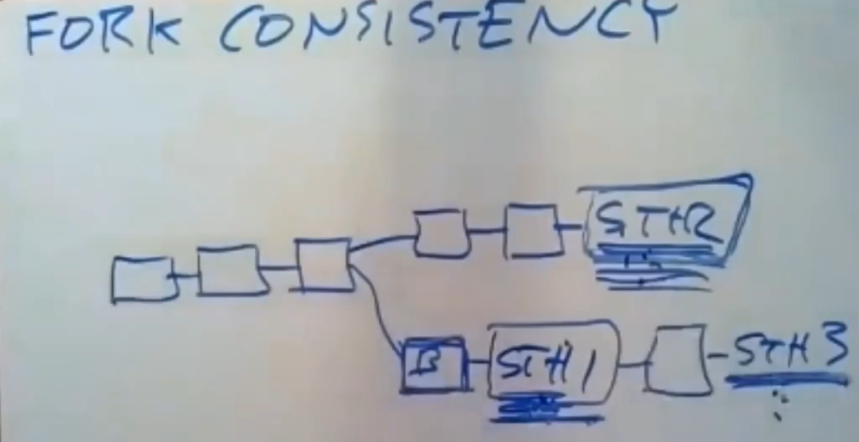 FORK CONSISTENCY
STH2
B
STH1
STH3